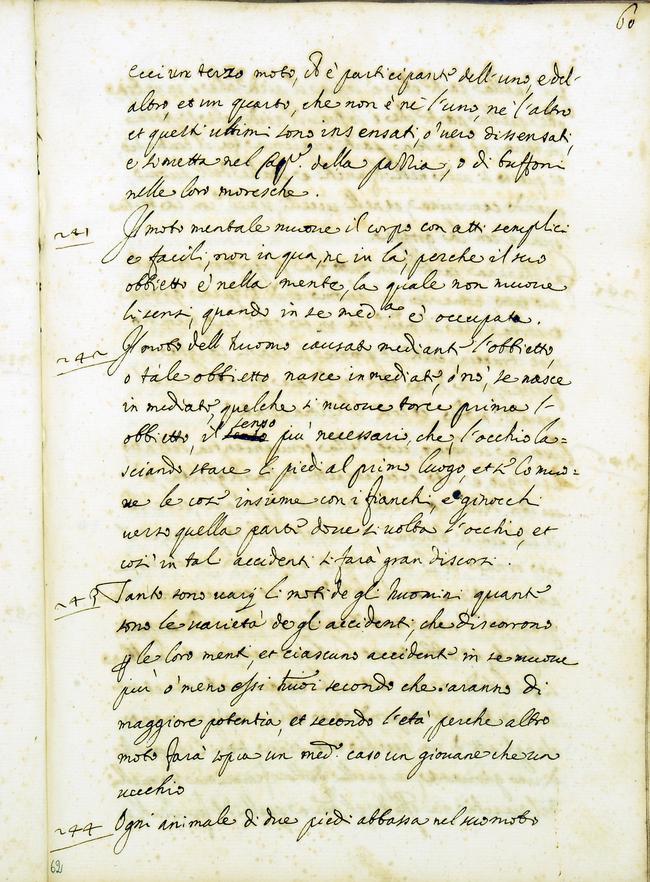 60
Ecci un terzo moto, ch è participante dell'uno, e del-
altro, et un quarto, che non è nè l'uno, nè l'altro
et questi ultimi sono insensati, ò vero dissensati,
e si metta nel Cap.º della pazzia, o di buffoni
nelle loro moresche.
241 Il moto mentale muove il corpo con atti semplici
e facili, non in qua, ne in là, perche il suo
obbietto è nella mente, la quale non muove
li sensi, quando in se med.ª è occupata.
242 Il moto dell huomo causato mediante l'obbietto,
o tale obbietto nasce inmediate, ò nò, se nasce
inmediate, quelche si muove torce prima l'-
obbietto, il senso più necessario, che, l'occhio la=
sciando stare li piedi al primo luogo, et s lo muo=
ve le cosse insieme con i fianchi, e ginocchi
verso quella parte dove si volta l'occhio, et
così in tali accidenti si farà gran discorsi.
243 Tanto sono varij li moti de gli huomini quante
sono le varietà de gli accidenti, che discorrono
p le loro menti, et ciascuno accidente in se muove
più ò meno essi huoi secondo che saranno di
maggiore potentia, et secondo l'età, perche altro
moto farà sopra un med.º caso un giovane che un
vecchio
244 Ogni animale di due piedi abbassa nel suo moto
62